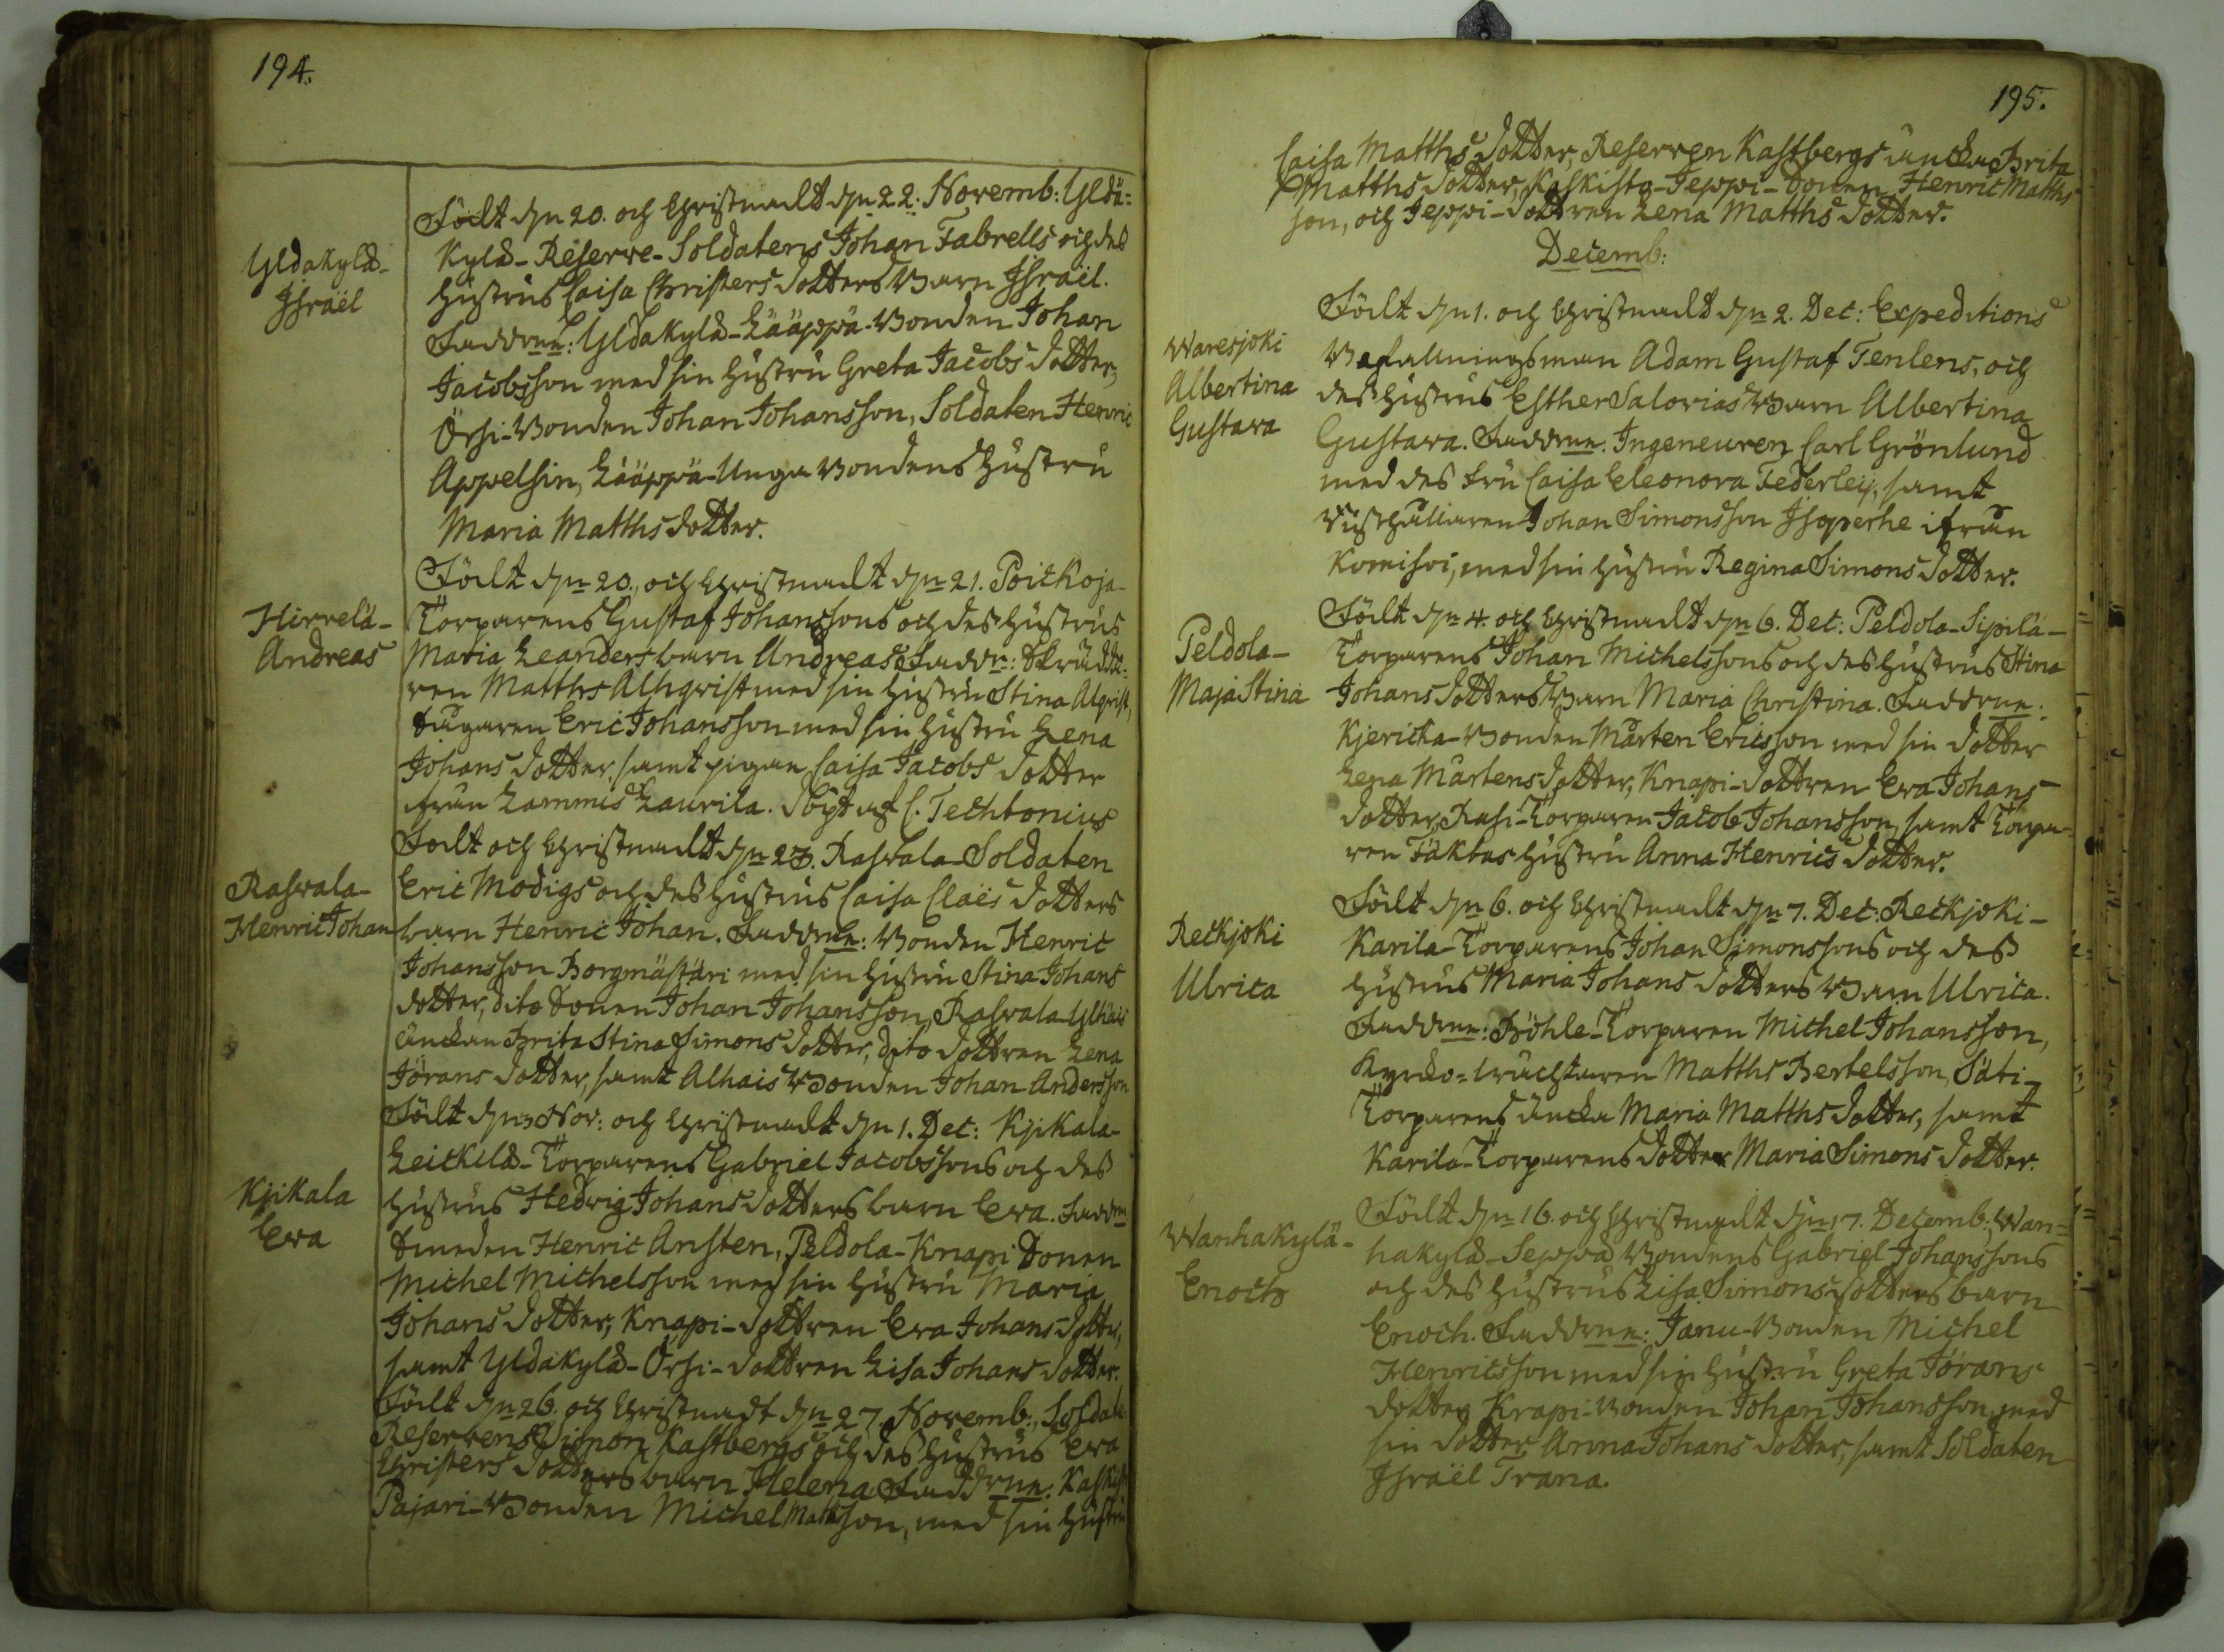 194.
Yldäkylä-
Jsraël
Födt d: 20. och Christnadt d: 22. Novemb: Yldä-
kylä-Reserve-Soldatens Johan Fabrells och des
hustrus Caisa Christers dotters Barn Jsraël.
Faddrne: Yldäkylä-Lääppä-Bonden Johan
Jacobsson med sin hustru Greta Jacobs dotter,
Örsi-Bonden Johan Johansson, Soldaten Henric
Appelsin, Lääppä-Unga Bondens hustru
Maria Matths dotter.
Hirvelä-
Andreas
Födt d: 20. och Christnadt d: 21. Poickoja-
Torparens Gustaf Johanssons och des hustrus
Maria Leanders barn Andreas. Faddr: Skrädda-
ren Matths Alhqvist med sin hustru Stina Alqvist,
Eric Johansson med sin hustru Lena
Johans dotter, samt pigan Caisa Jacobs dotter
från Lammis Laurila. Döpt af C. Techtonius
Rasvala-
Henric Johan
Födt och Christnadt d: 23. Rasvala-Soldaten
Eric Modigs och des hustrus Caisa Claës dotters
barn Henric Johan. Faddrne: Bonden Henric
Johansson Borgmästäri med sin hustru Stina Johans
dotter, dito Sonen Johan Johansson, Rasvala-Ylhäis
änckan Brita Stina Simons dotter, dito dottren Lena
Jörans dotter, samt Alhais Bonden Johan Andersson
Kjikala
Eva
Födt d: Nov: och Christnadt d: 1. Dec: Kjikala-
Leickilä-Torparens Gabriel Jacobssons och des
hustrus Hedvig Johans dotters barn Eva. Faddrne
Smeden Henric Ansten, Peldola-Knapi Sonen
Michel Michelsson med sin hustru Maria
Johans dotter, Knapi-dottren Eva Johans dotter,
samt Yldäkylä-Örsi-dottren Lisa Johans dotter.
Födt d: 26. och Christnadt d: 27. Novemb:, Soldate
Reservens Simon Kastbergs och des hustrus Eva
Christers dotters barn Helena. Faddrne: Kaskist
Pajari-Bonden Michel Mattsson, med sin hustru
195.
Caisa Matths dotter, Reserven Kastbergs äncka Brita
Matths dotter, Kaskisto-Jeppi-Sonen Henric Matths
son, och Jeppi-dottren Lena Matths dotter.
Decemb:
Waresjoki
Albertina
Gustava
Födt d: 1. och Christnadt d: 2. Dec: Expeditions
Befallningsman Adam Gustaf Tenlens, och
des hustrus Esther Salovias Barn Albertina
Gustava. Faddrne. Ingeneuren Carl Grönlund
med des fru Caisa Eleonora Federley, samt
Johan Simonsson Jsoperhe ifrån
Komisoi, med sin hustru Regina Simons dotter.
Peldola-
Maja Stina
Födt d: 4. och Christnadt d: 6. Dec: Peldola-Sipilä-
Torparens Johan Michelssons och des hustrus Stina
Johans dotters Barn Maria Christina. Faddrne:
Kjericka-Bonden Mårten Ericsson med sin dotter
Lena Mårtens dotter, Knapi-dottren Eva Johans
dotter, Rasi-Torparen Jacob Johansson, samt Torpa-
ren Täktes hustru Anna Henrics dotter.
Reckjoki
Ulrica
Födt d: 6. och Christnadt d: 7. Dec: Reckjoki-
Karila-Torparens Johan Simonssons och des
hustrus Maria Johans dotters Barn Ulrica.
Faddrne: Böhle-Torparen Michel Johansson,
Kyrko-wäcktaren Matths Bertelsson, Säti-
Torparens äncka Maria Matths dotter, samt
Karila-Torparens dotter Maria Simons dotter.
Wanhakylä-
Enoch
Födt d: 16. och Christnadt d: 17. Decemb: Wan-
hakylä-Seppä Bondens Gabriel Johanssons
och des hustrus Lisa Simons dotters barn
Enoch. Faddrne: Janu-Bonden Michel
Henricsson med sin hustru Greta Jörans
dotter, Knapi-Bonden Johan Johansson med
sin dotter Anna Johans dotter, samt Soldaten
Jsraël Trana.